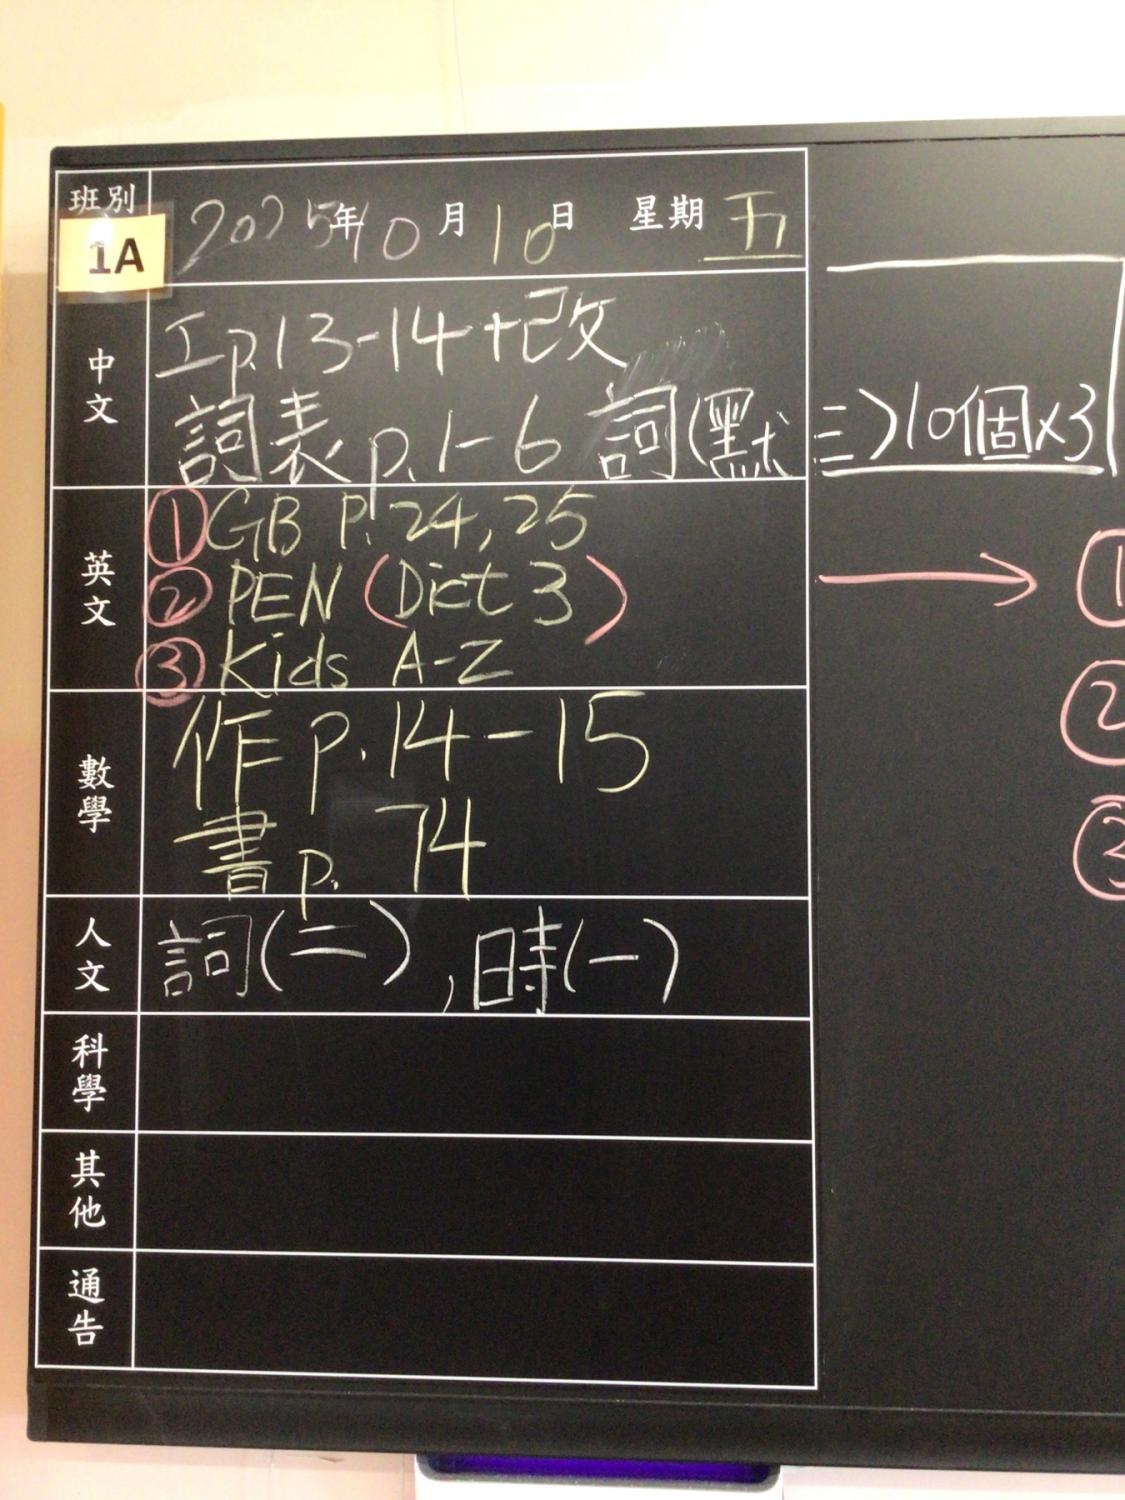 班別 2025年10月10日 星期五
1A
中文
工p.13-14+改
詞表p.1-6 詞(默三)10個x3
英文
①GB P.24,25
②PEN (Dict 3)
③Kids A-Z
①
②
數學
作p.14-15
書p.74
人文
詞(二),時(一)
科學
其他
通告